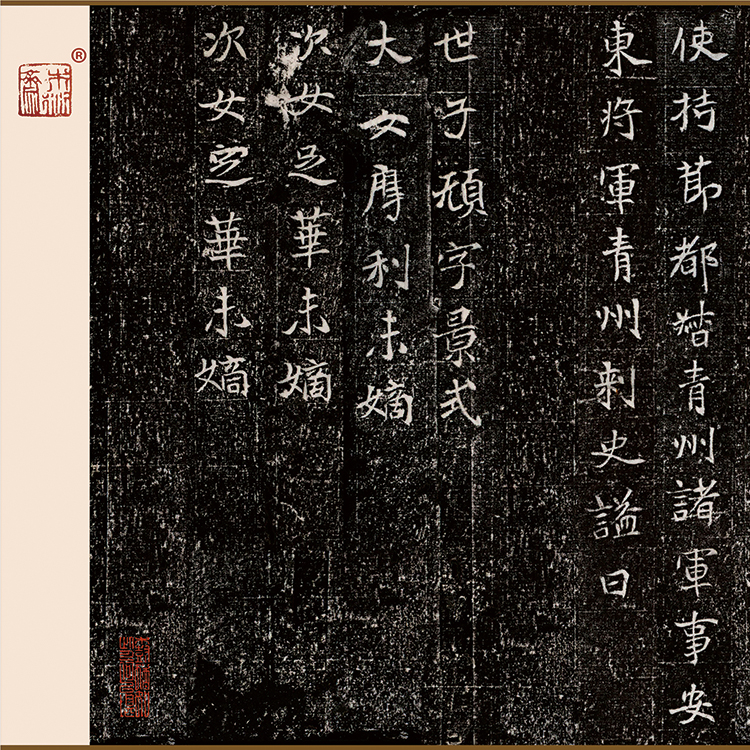 使持節都督青州諸軍事安
東將軍青州刺史謚曰
世子頊字景式
大女摩利未嫡
次女足華未嫡
次女定華未嫡
®